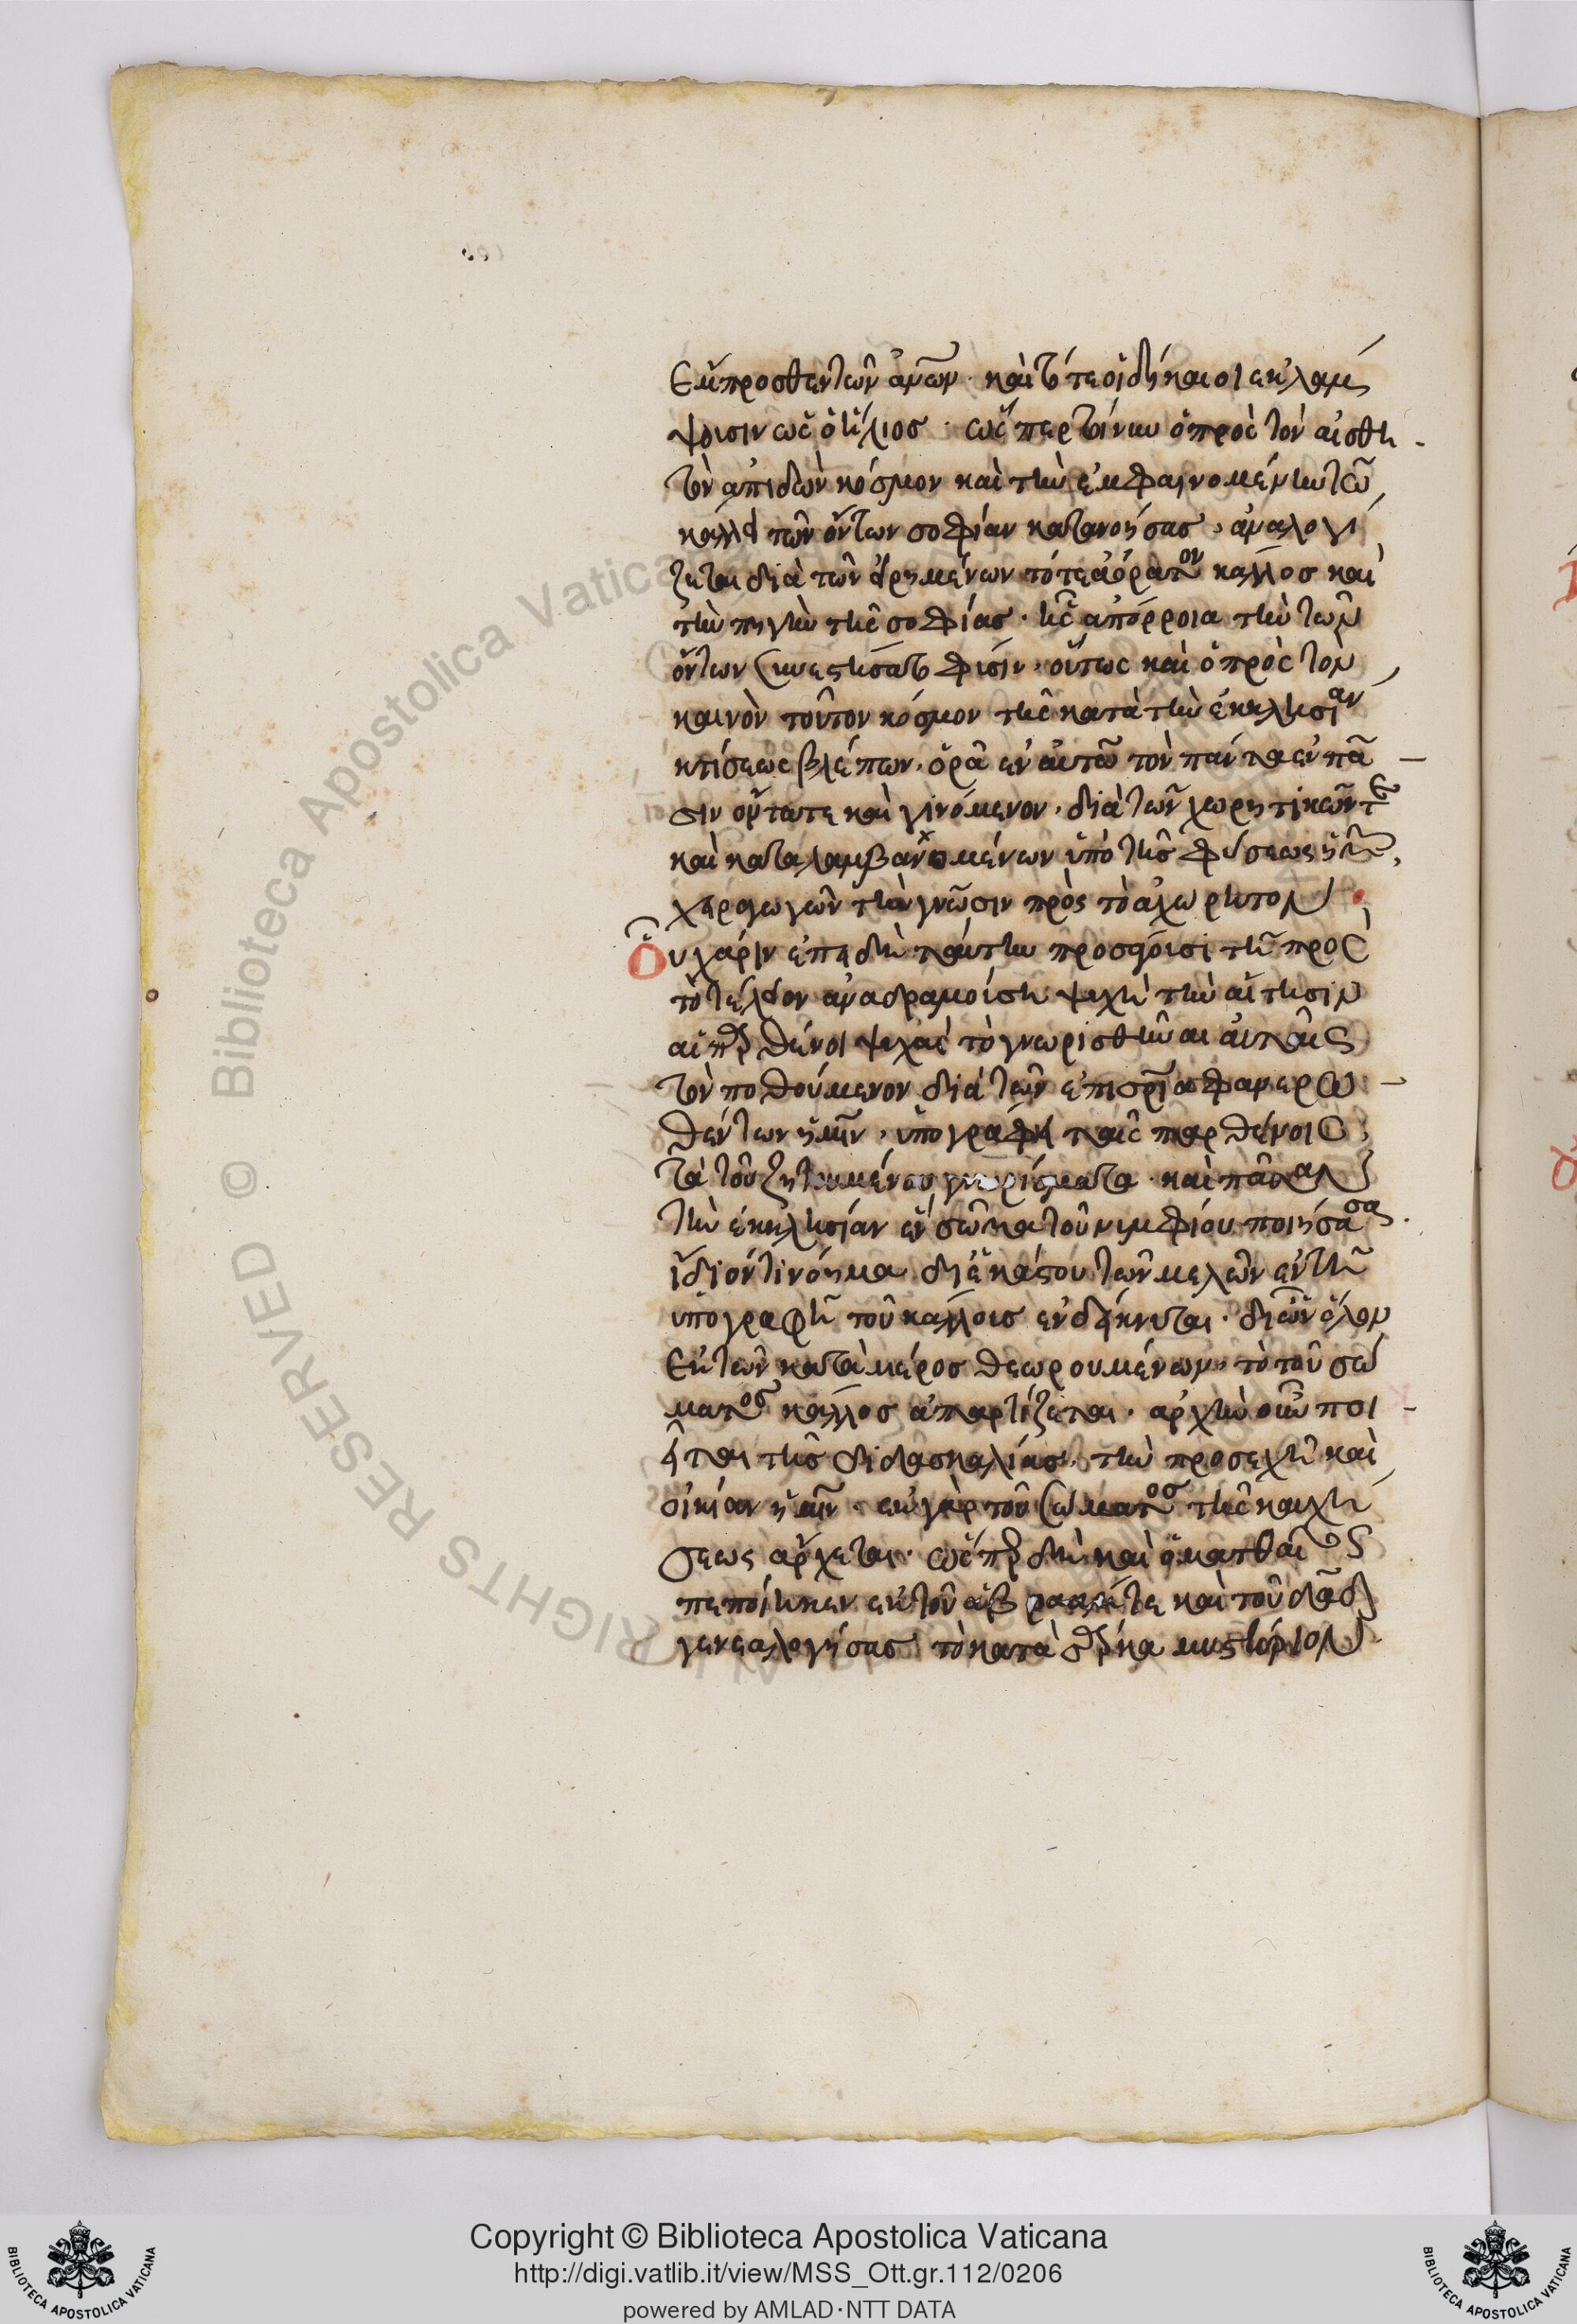 ἔμπροσθεν τῶν ἀνων· καὶ τότε οἱ δίκαιοι ἐκλάμ
ψουσιν ὡς ὁ ἥλιος· ὥσπερ τοίνυν ὁ πρὸς τὸν αἰσθη
τὸν ἀπιδὼν κόσμον καὶ τὴν ἐμφαινομένην τῶ
κάλλει τῶν ὄντων σοφίαν κατανοήσας, ἀναλογί
ζεται διὰ τῶν ὁρωμένων τό τε ἀόρατον κάλλος καὶ
τὴν πηγὴν τῆς σοφίας· ἧς ἀπόρροια τὴν τῶν
ὄντων συνεστήσατο φύσιν, οὕτως καὶ ὁ πρὸς τὸν
καινὸν τοῦτον κόσμον τῆς κατὰ τὴν ἐκκλησίαν
κτίσεως βλέπων, ὁρᾶ ἐν αὐτῶ τὸν πάντα ἐν πᾶ
σιν ὄντα τε καὶ γινόμενον, διὰ τῶν χωρητικῶν τε
καὶ καταλαμβανομένων ὑπὸ τῆς φύσεως ἡμῶν
χειραγωγῶν τὴν γνῶσιν πρὸς τὸ ἀχώρητον
Οὗ χάριν ἐπειδὴ ταύτην προσάγουσι τῆ πρὸς
τὸ τέλειον ἀναδραμούση ψυχῆ τὴν αἴτησιν
αἱ παρθένοι ψυχαὶ τὸ γνωρισθῆναι αὐταῖς
τὸν ποθούμενον διὰ τῶν ἐπὶ σρία φανερω
θέντων ἡμῖν, ὑπογράφει ταῖς παρθένοις
τὰ τοῦ ζητουμένου γνωρίσματα· καὶ πᾶσαν
τὴν ἐκκλησίαν ἓν σῶμα τοῦ νυμφίου ποιήσασα
ἴδιόν τι νόημα δι' ἑκάστου τῶν μελῶν ἐν τῆ
ὑπογραφῆ τοῦ κάλλους ἐνδείκνυται· δι' ὧν ὅλον
ἐκ τῶν κατὰ μέρος θεωρουμένων, τὸ τοῦ σώ
ματος κάλλος ἀπαρτίζεται· ἀρχὴν οὖν ποι
εῖται τῆς διδασκαλίας, τὴν προσεχῆ καὶ
οἰκίαν ἡμῖν· ἐκ γὰρ τοῦ σώματος τῆς κατηχή
σεως ἄρχεται· ὥσπερ δὴ καὶ ὁ ματθαῖος
πεποίηκεν ἐκ τοῦ ἀβραάμ τε καὶ τοῦ δαδ
γενεαλογήσας τὸ κατὰ σάρκα μυστήριον
Copyright © Biblioteca Apostolica Vaticana
http://digi.vatlib.it/view/MSS_Ott.gr.112/0206
powered by AMLAD·NTT DATA
BIBLIOTECA APOSTOLICA VATICANA
BIBLIOTECA APOSTOLICA VATICANA
© Biblioteca Apostolica Vaticana
ALL RIGHTS RESERVED